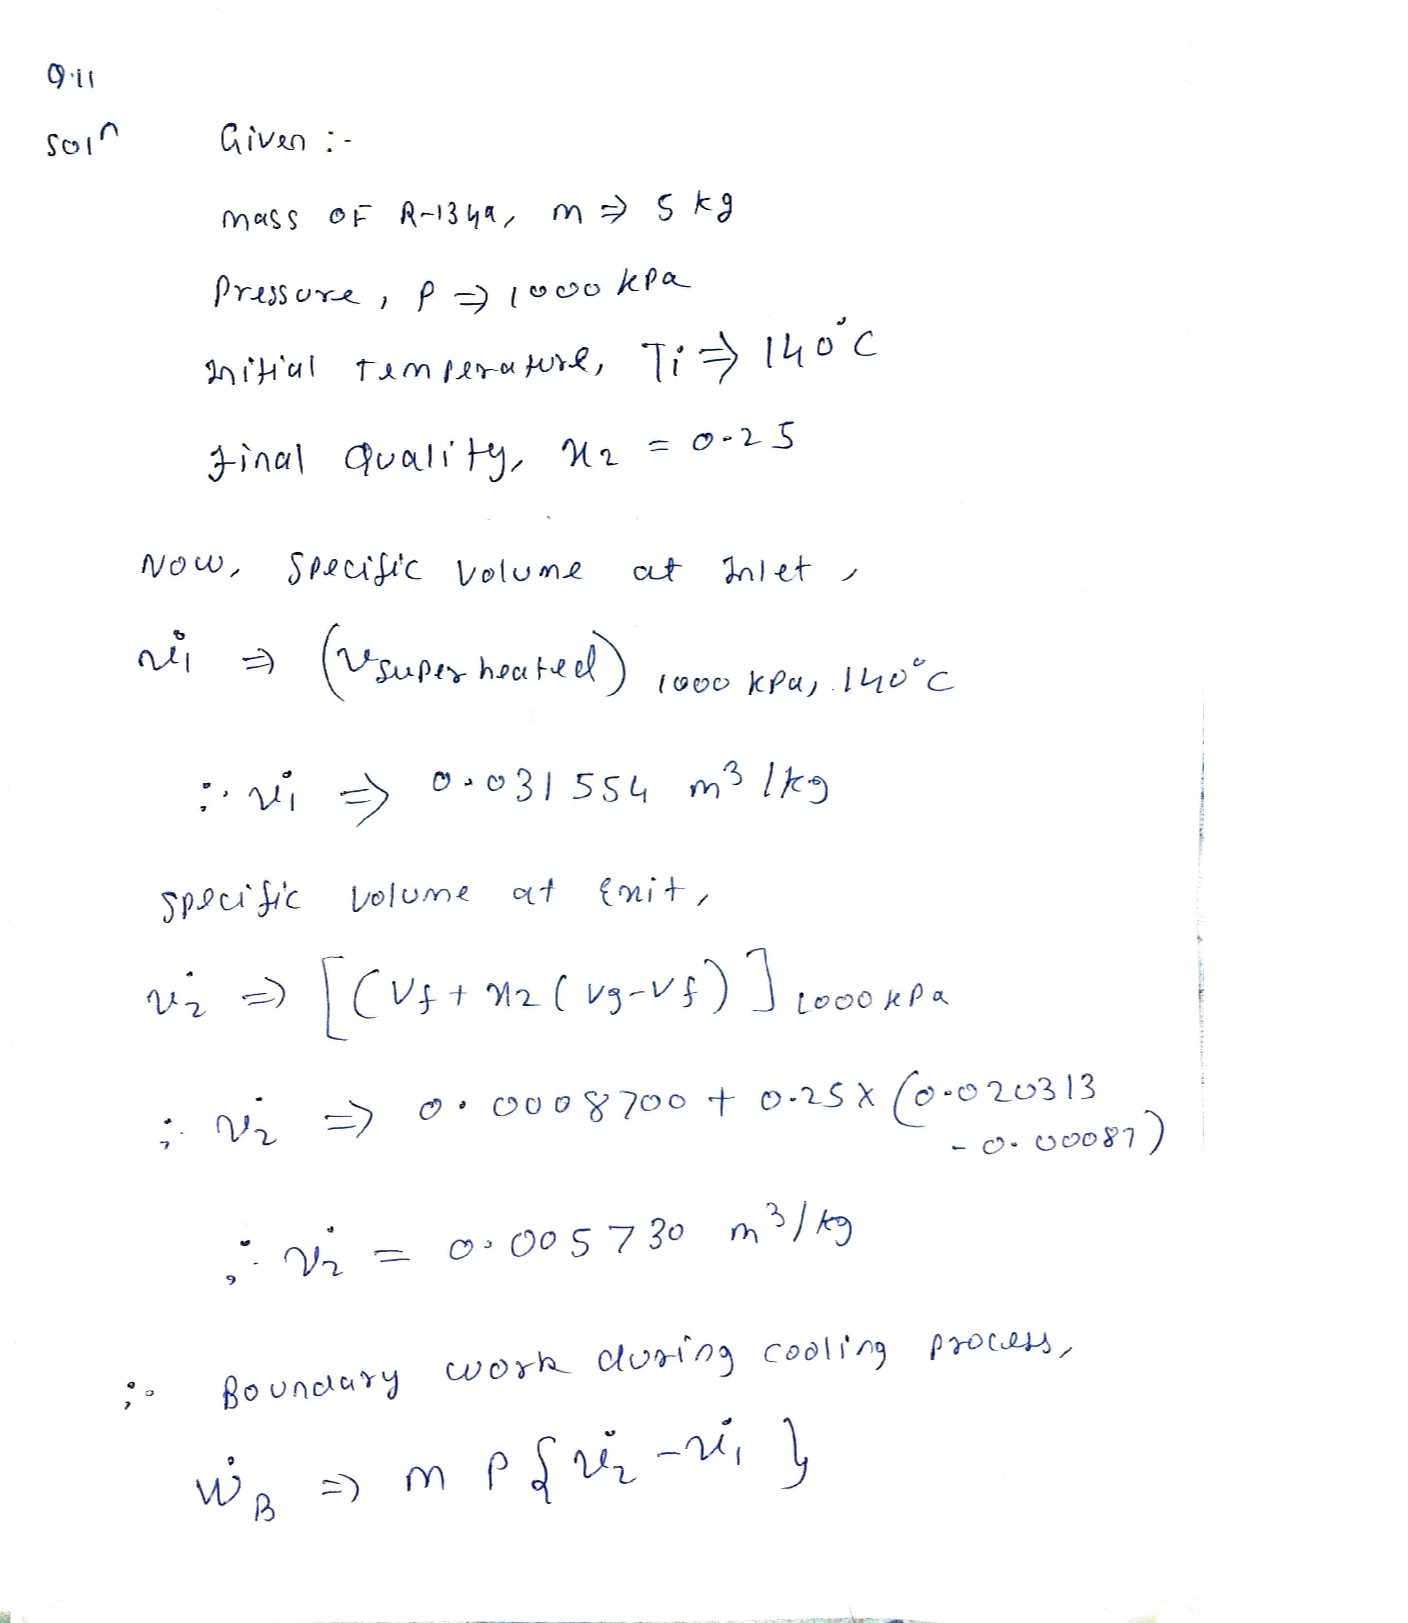 Q.11
Soln Given :-
Mass OF R-134a, m ⇒ 5 kg
Pressure, P ⇒ 1000 kPa
Initial Temperature, Ti ⇒ 140°C
Final Quality, x2 = 0.25
Now, Specific Volume at Inlet,
v̇1 ⇒ (v superheated) 1000 kPa, 140°C
∴ v̇1 ⇒ 0.031554 m³/kg
Specific Volume at Exit,
v̇2 ⇒ [(Vf + x2(Vg-Vf)] 1000 kPa
∴ v̇2 ⇒ 0.0008700 + 0.25 x (0.020313
- 0.00087)
∴ v̇2 = 0.005730 m³/kg
∴ Boundary work during cooling process,
ẇB ⇒ m P { v̇2 - v̇1 }